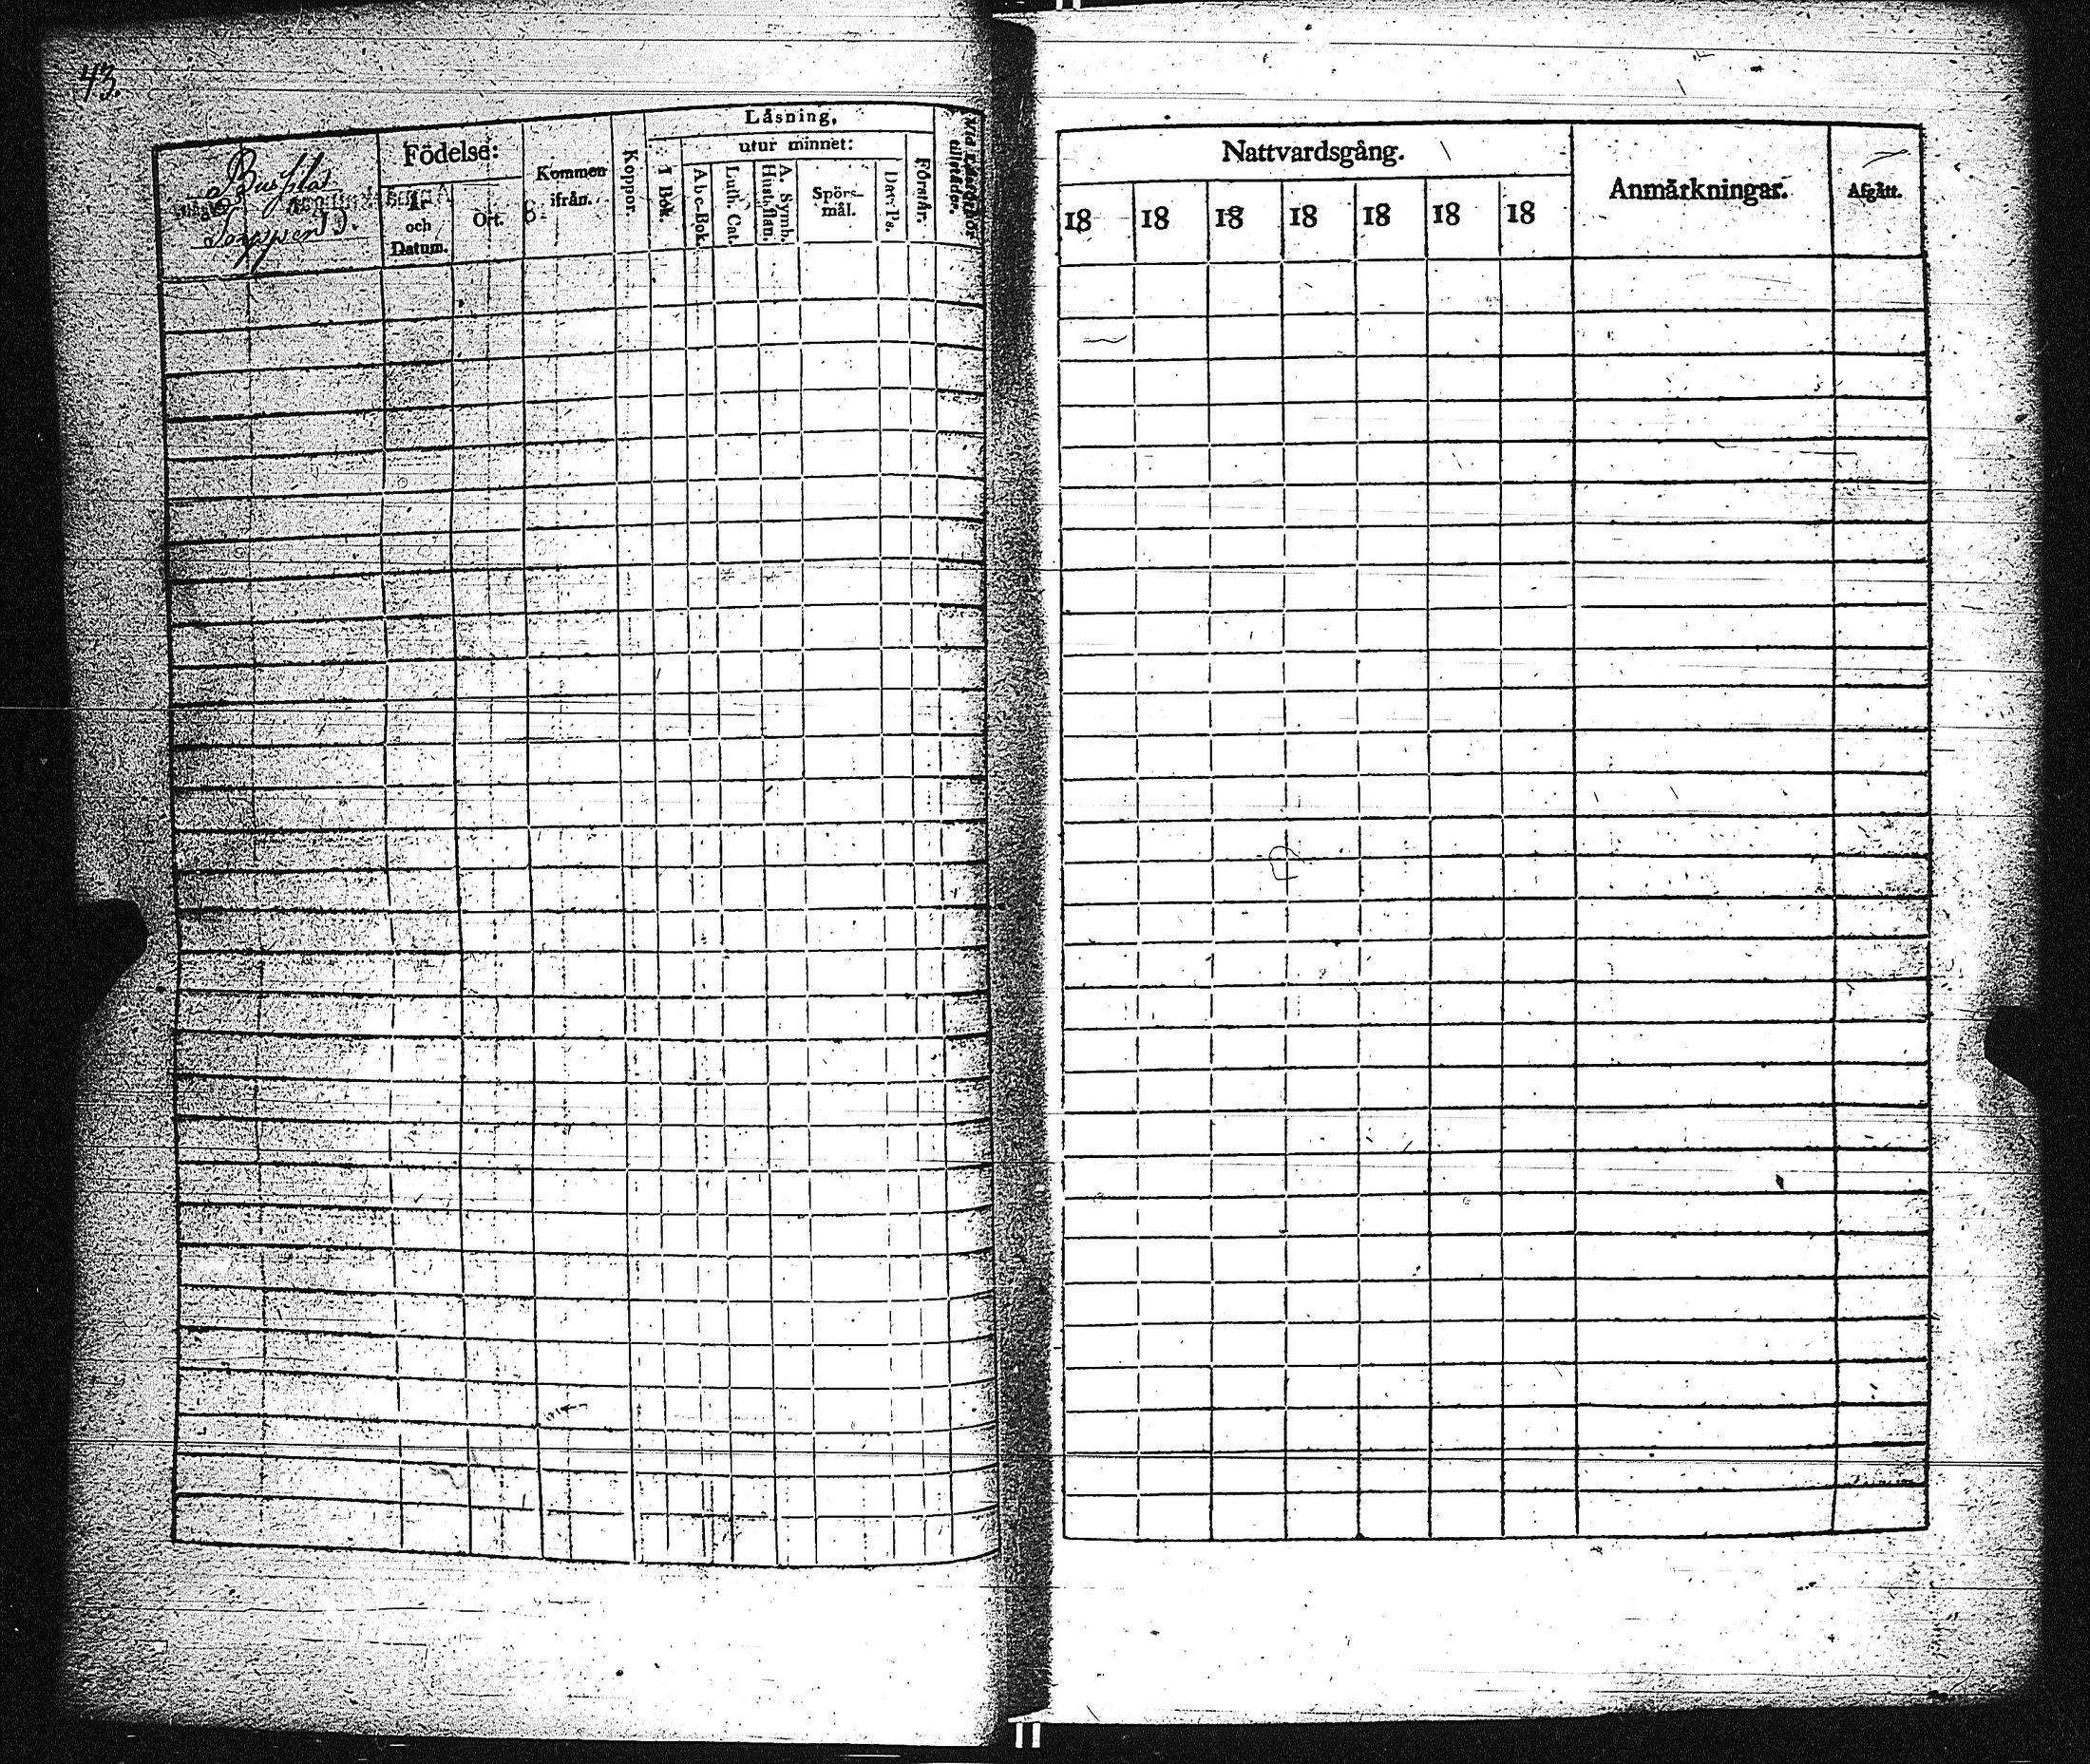 43.
Födelse:
År och Datum.
Ort.
Kommen ifrån.
Koppor.
Läsning,
I Bok.
utur minnet:
Abc-Bok.
Luth. Cat.
A. Symb. Hust.flan.
Spörs-
mål.
Dav. Ps.
Förstår.
Nattvardsgång.
18 18 18 18 18 18 18
Anmärkningar.
Afgått.